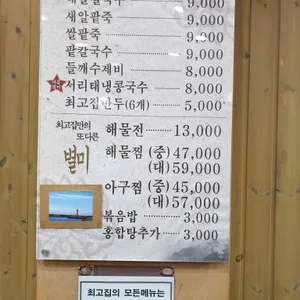 9,000
새알팥죽 9,000
쌀팥죽 9,000
팥칼국수 9,000
들깨수제비 8,000
서리태냉콩국수 8,000
최고집만두(6개) 5,000
최고집만의
또다른
별미
해물전 13,000
해물찜 (중) 47,000
(대) 59,000
아구찜 (중) 45,000
(대) 57,000
볶음밥 3,000
홍합탕추가 3,000
최고집의 모든메뉴는